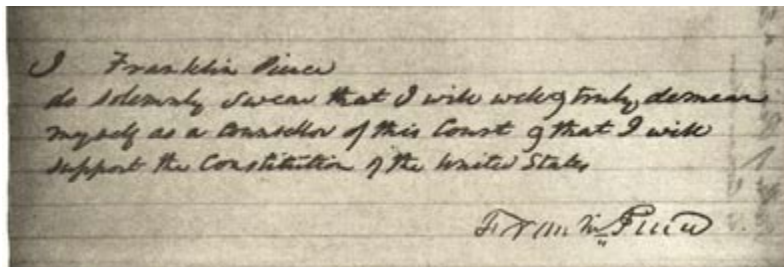 I Franklin Pierce
do solemnly swear that I will well & truly demean
myself as a Counsellor of this Court & that I will
support the Constitution of the United States
Franklin Pierce